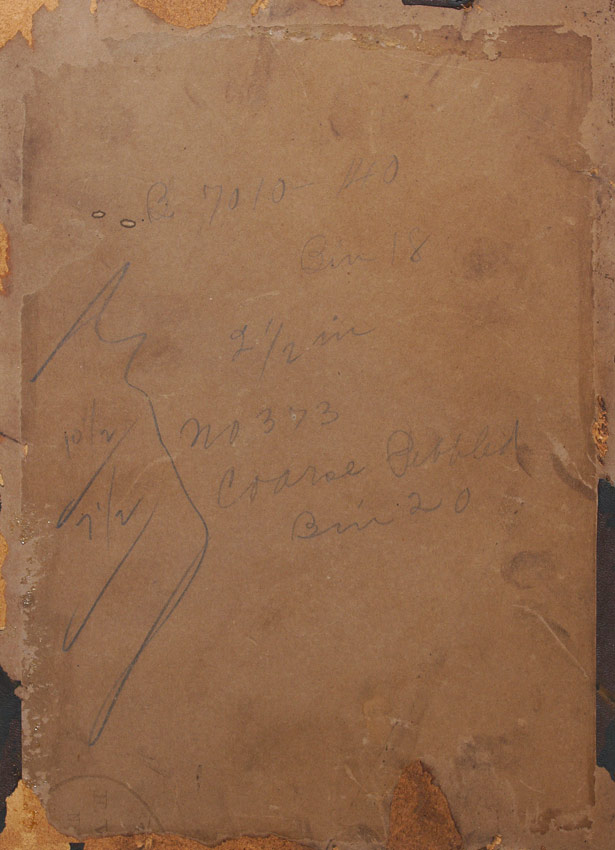 7010
Bin 16
2 1/2 in
10 1/2
No 373
Coarse Pebbled
7 1/2
Bin 20